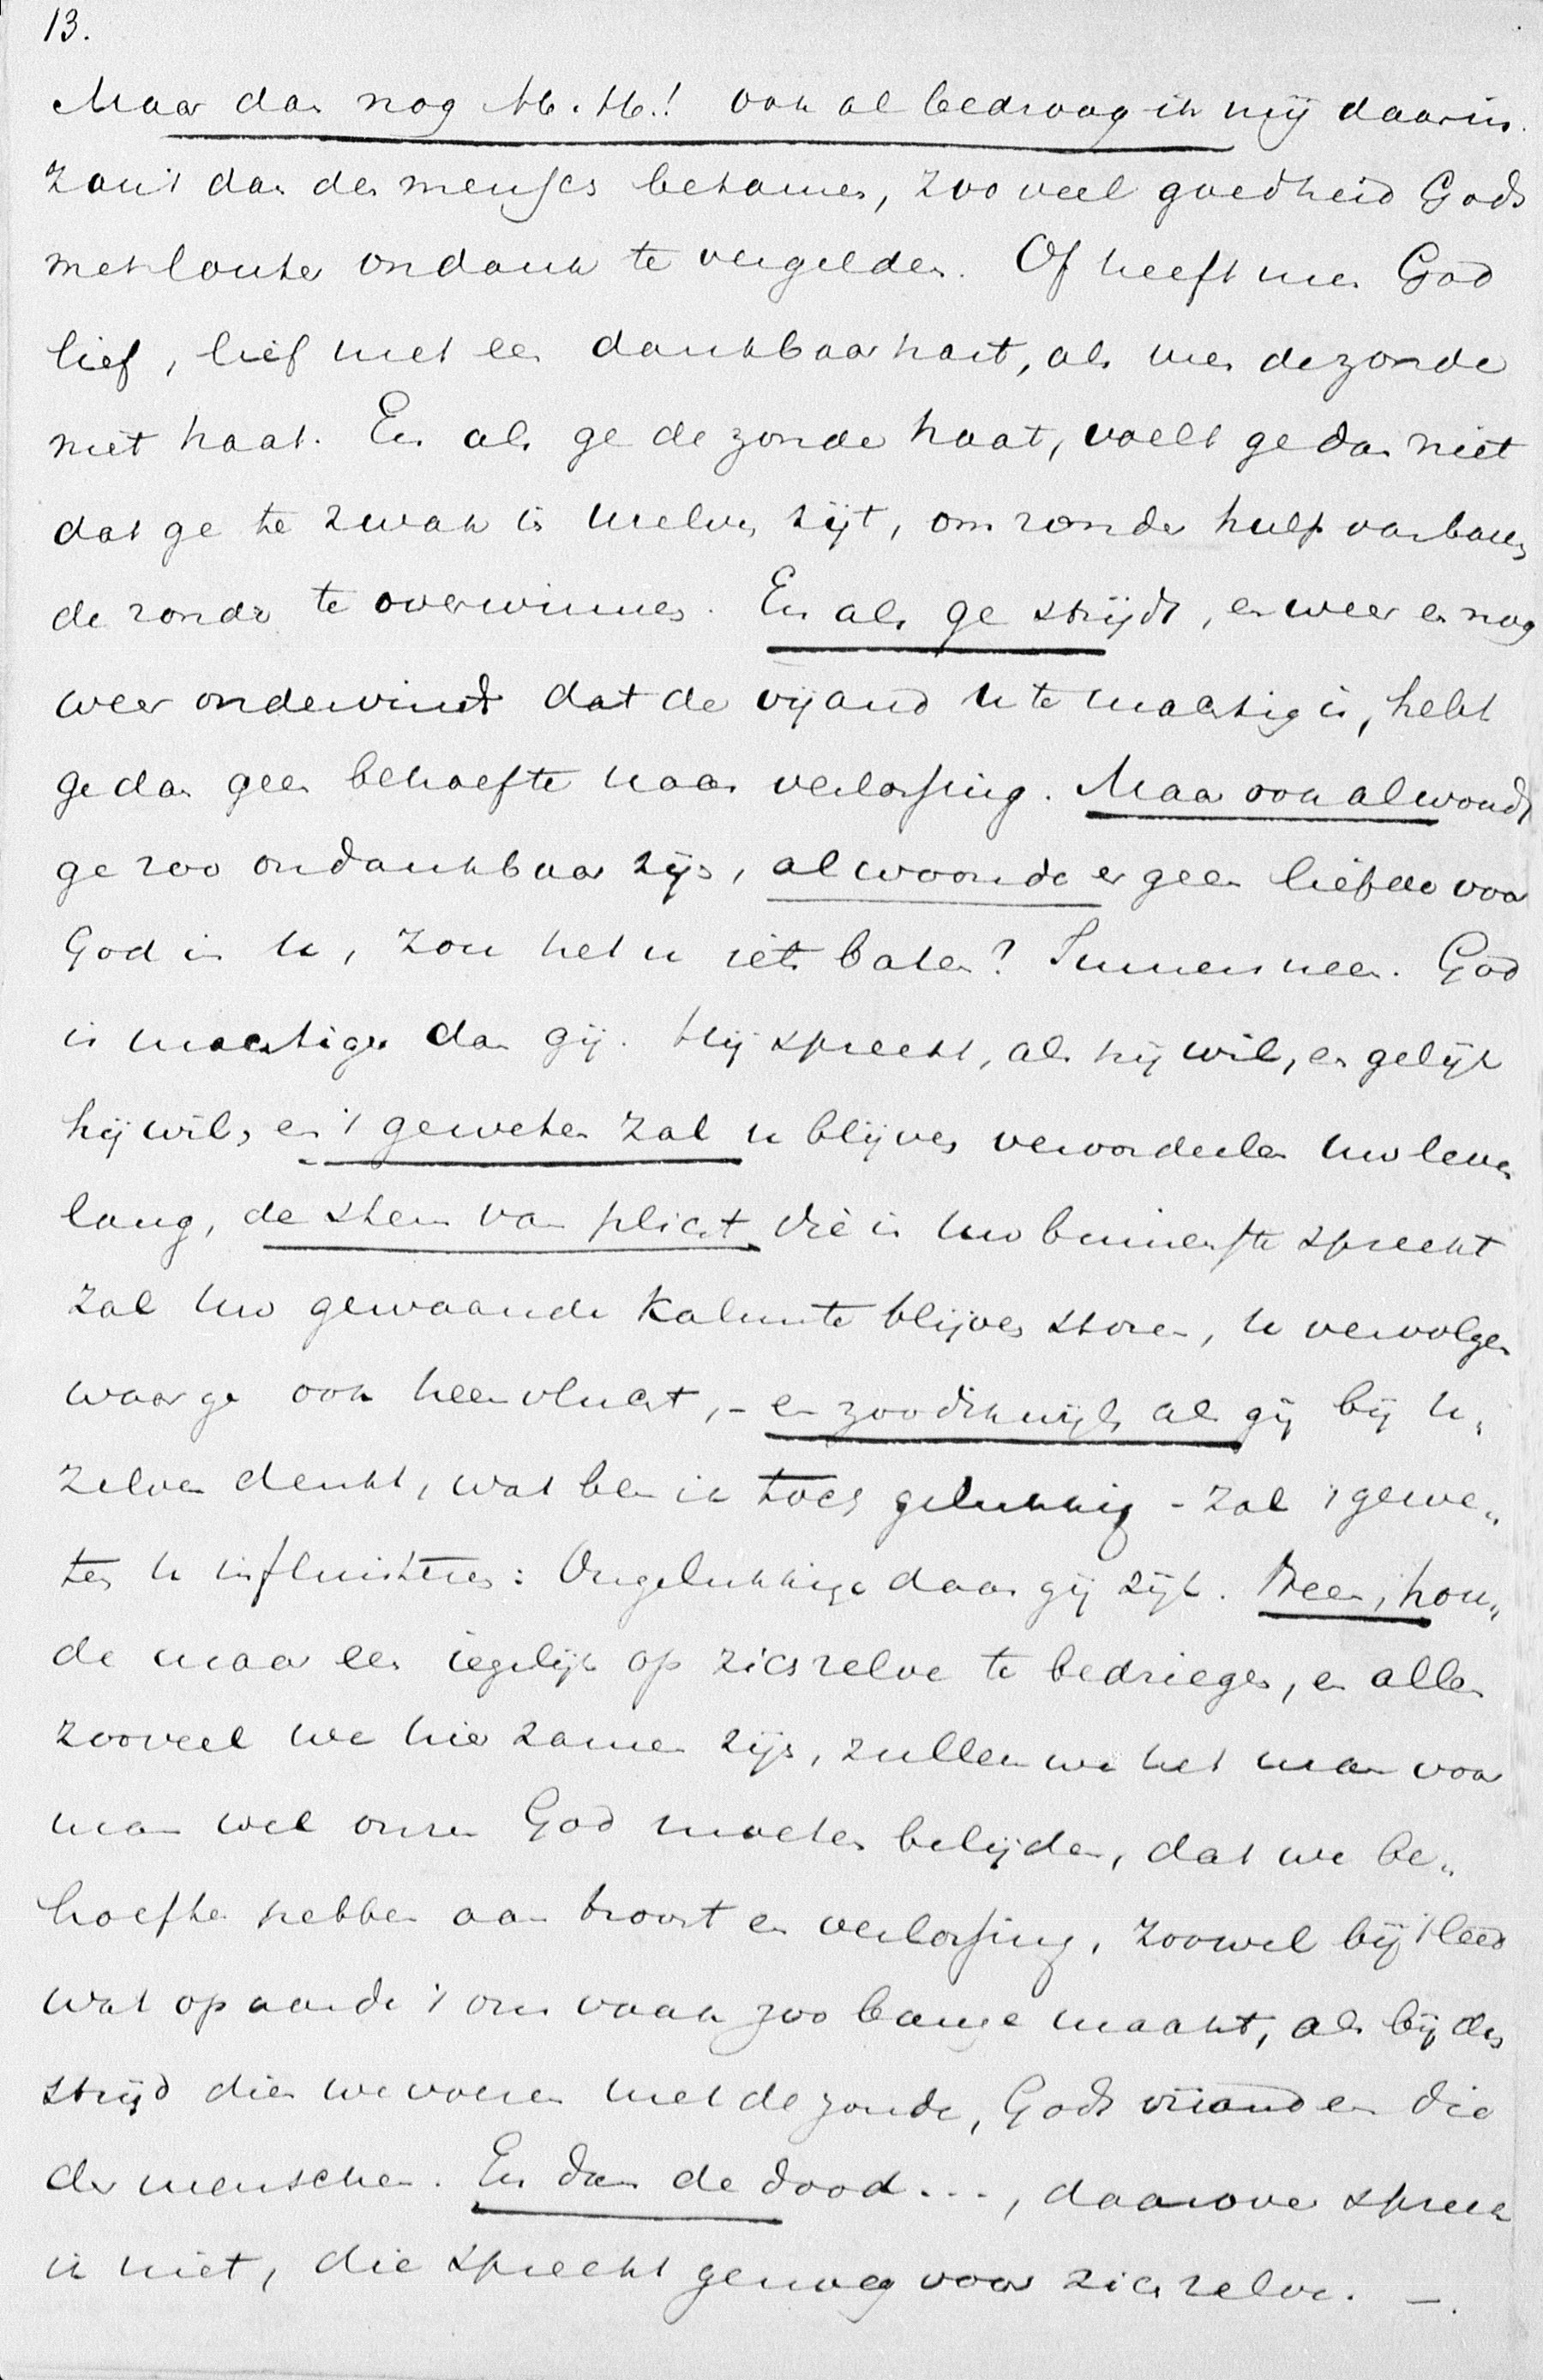 13.
Maar dan nog M. H.! ook al bedroog ik mij daarin.
zou 't dan den mensch betamen, zoo veel goedheid Gods
met louter ondank te vergelden. Of heeft men God
lief, lief met een dankbaar hart, als men de zonde
niet haat. En als ge de zonde haat, voelt ge dan niet
dat ge te zwak in uzelven zijt, om zonder hulp van boven
de zonde te overwinnen. En als ge strijdt, en weer en nog
weer ondervindt dat de vijand u te machtig is, hebt
ge dan geen behoefte naar verlossing. Maar ook al woudt
ge zoo ondankbaar zijn, al woonde er geen liefde voor
God in u, zou het u iets baten? Immers neen. God
is machtiger dan gij. Hij spreekt, als hij wil, en gelijk
hij wil, en 't geweten zal u blijven veroordeelen uw leven
lang, de stem van plicht die in uw binnenste spreekt
zal uw gewaande kalmte blijven storen, u vervolgen
waar ge ook heenvlucht, - en zoodikwijls als gij bij u„
zelven denkt, wat ben ik toch gelukkig - zal 't gewe„
ten u influisteren: Ongelukkige daar gij zijt. Neen, hou„
de maar een iegelijk op zichzelve te bedriegen, en allen
zooveel we hier zamen zijn, zullen we het man voor
man wel onzen God moeten belijden, dat we be„
hoefte hebben aan troost en verlossing, zoowel bij 't leed
wat op aarde 't ons vaak zoo bange maakt, als bij den
strijd dien we voeren met de zonde, Gods vijand en die
der menschen. En dan de dood..., daarover spreek
ik niet, die spreekt genoeg voor zichzelve. —.